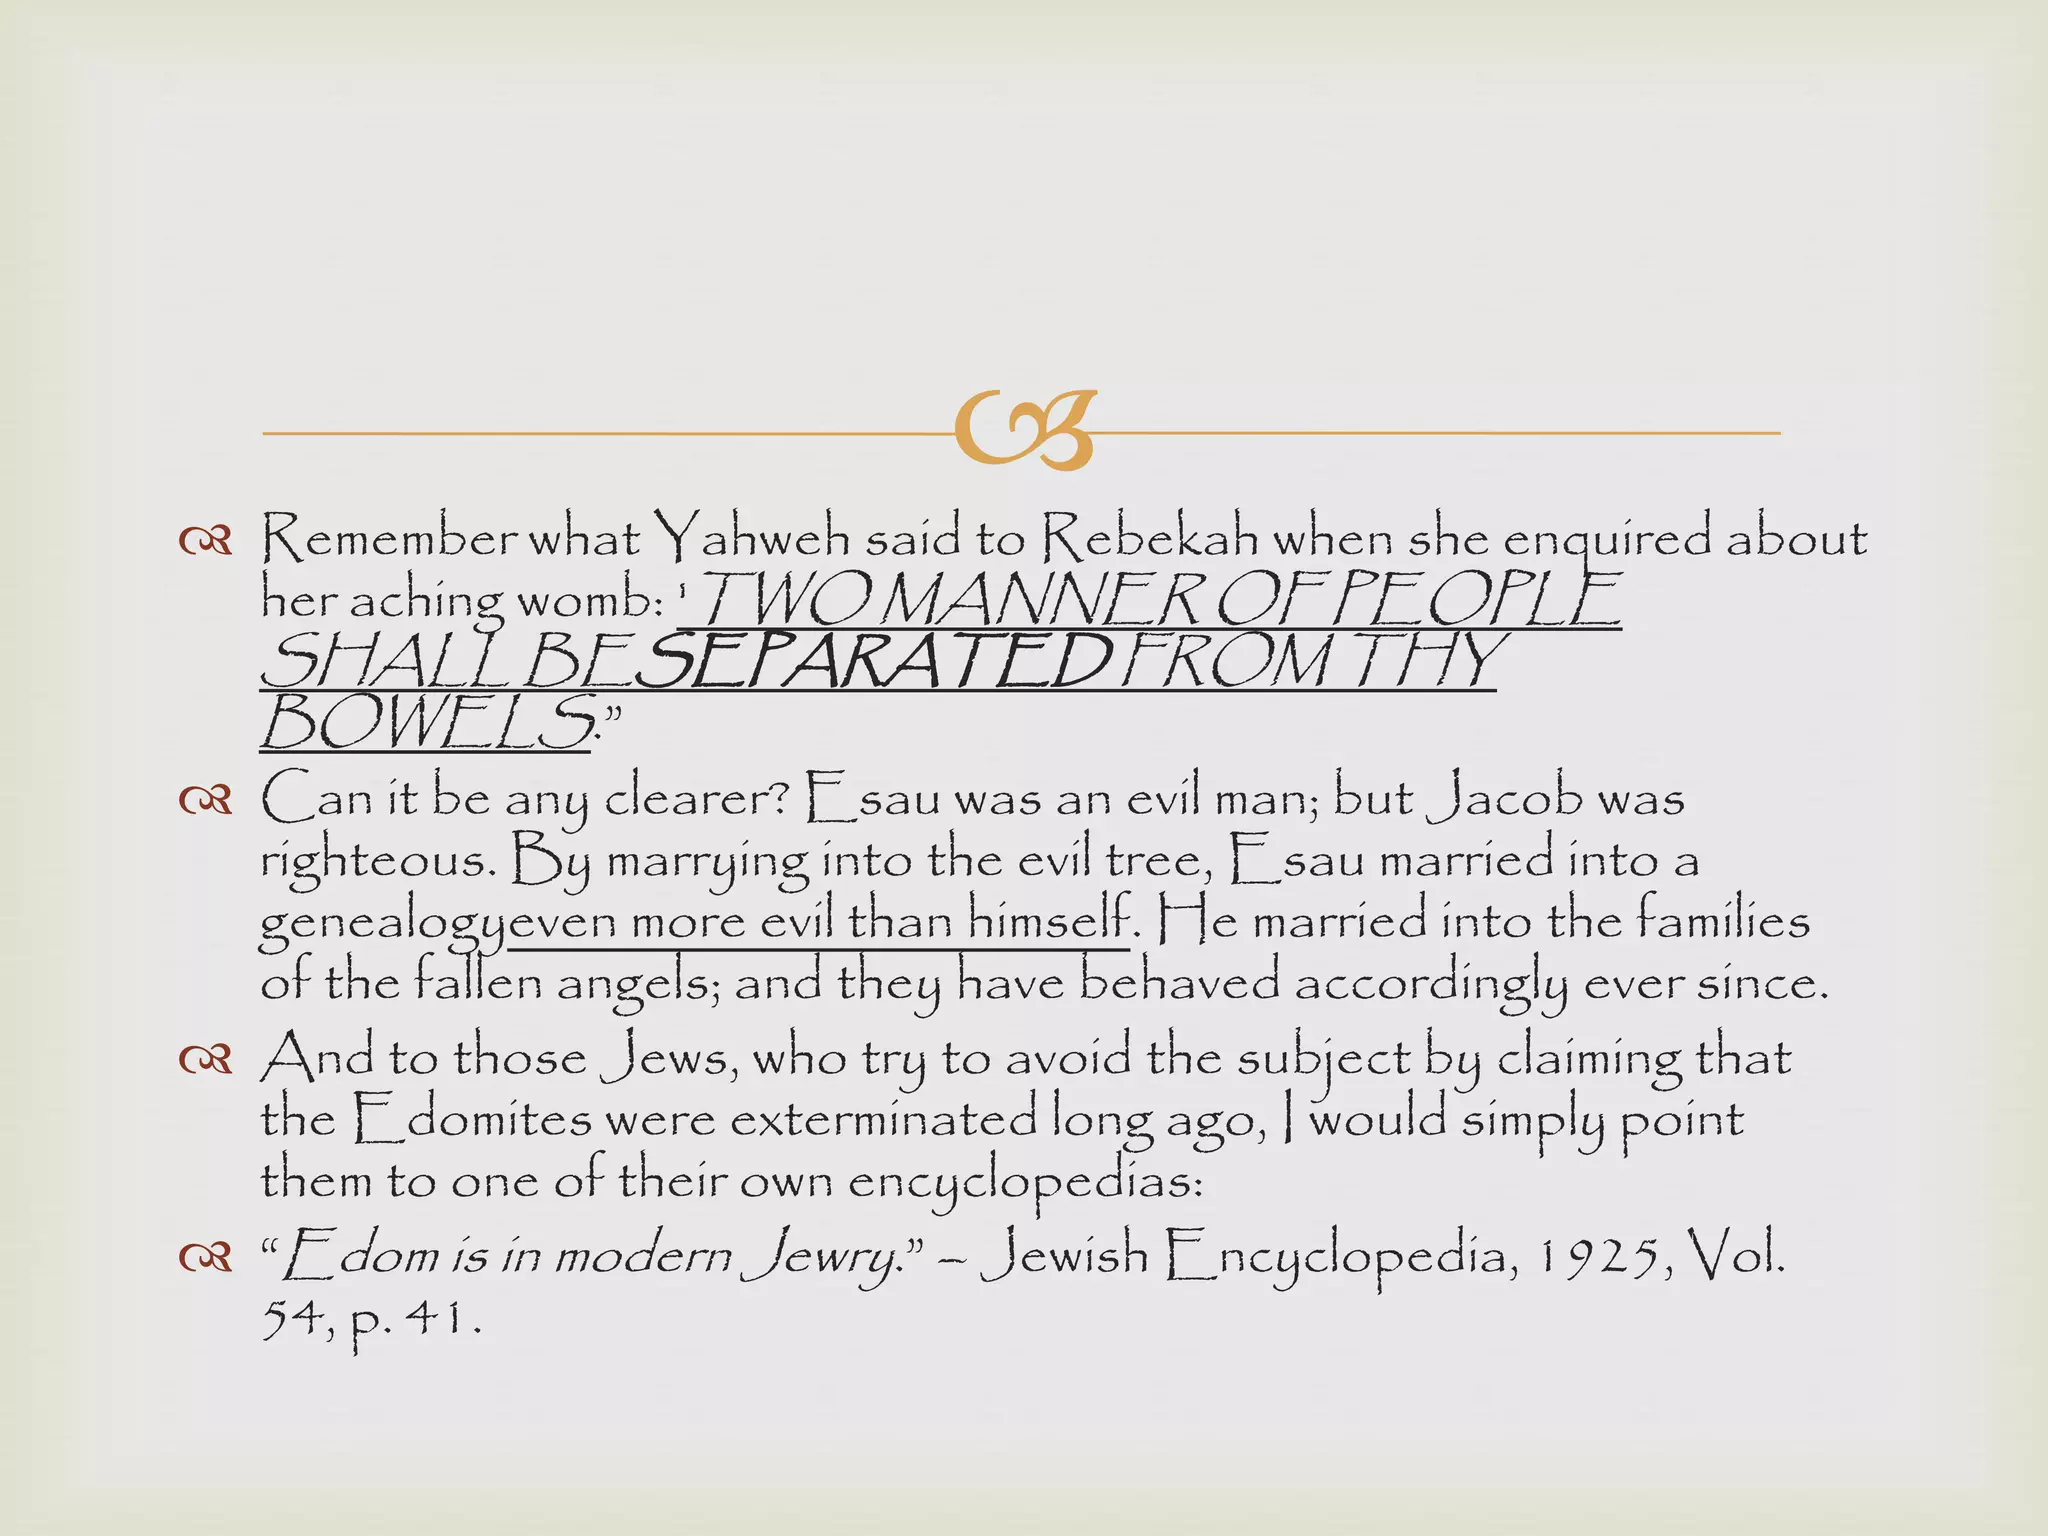 Remember what Yahweh said to Rebekah when she enquired about
her aching womb: 'TWO MANNER OF PEOPLE
SHALL BESEPARATED FROM THY
BOWELS.”
Can it be any clearer? Esau was an evil man; but Jacob was
righteous. By marrying into the evil tree, Esau married into a
genealogyeven more evil than himself. He married into the families
of the fallen angels; and they have behaved accordingly ever since.
And to those Jews, who try to avoid the subject by claiming that
the Edomites were exterminated long ago, I would simply point
them to one of their own encyclopedias:
“Edom is in modern Jewry.” – Jewish Encyclopedia, 1925, Vol.
54, p. 41.